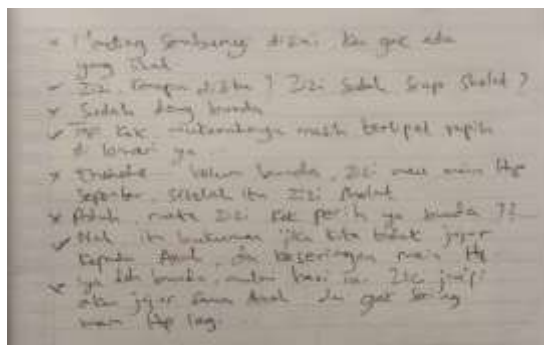 x Penting Sembunyi disini kan gak ada
yang lihat
✓ Zizi kenapa disitu ? Zizi Sudah Siap Sholat ?
x Sudah dong bunda
✓ kok mukenahnya masih terlipat rapih
di lemari ya
x Belum bunda, Zizi mau main Hp
sebentar, setelah itu Zizi Sholat
x Aduh, mata Zizi kok perih ya bunda ??
✓ Nah, itu hukuman jika kita tidak jujur
kepada Allah, dan keseringan main Hp
x iya bunda, mulai hari ini Zizi janji
akan jujur sama Allah dan gak sering
main Hp lagi.